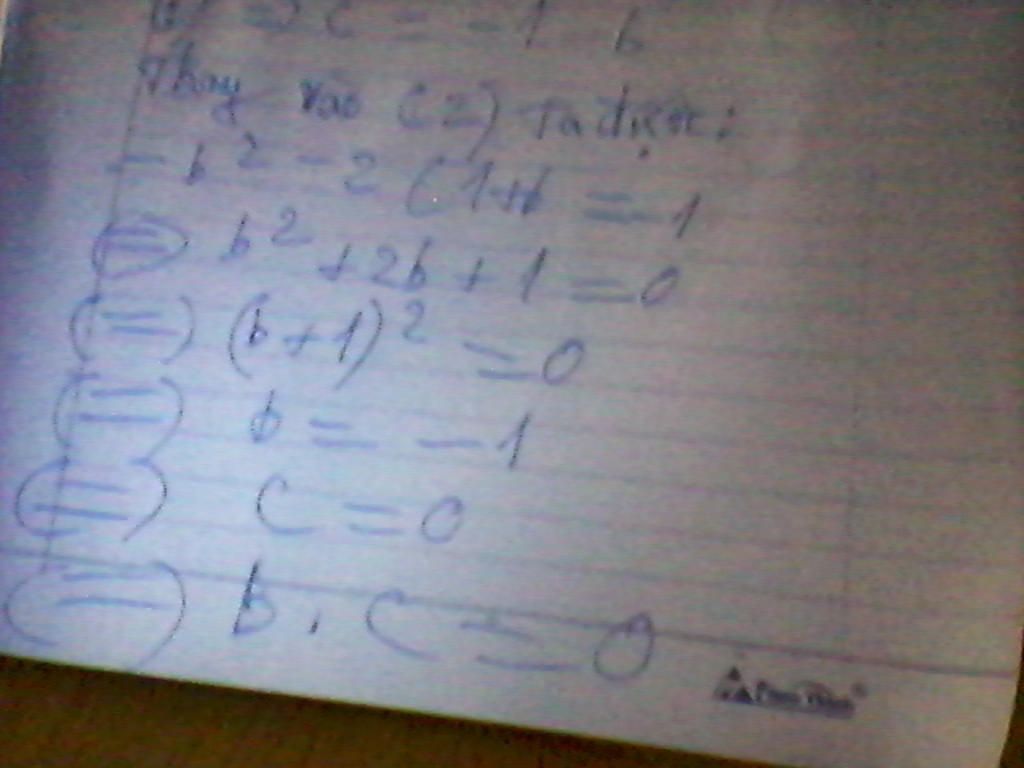 => c = -1 b
Thay vào (2) ta được:
- b² - 2 (1+b = -1
<=> b² + 2b + 1 = 0
(=) (b+1)² = 0
(=) b = -1
(=) c = 0
(=) b . c = 0